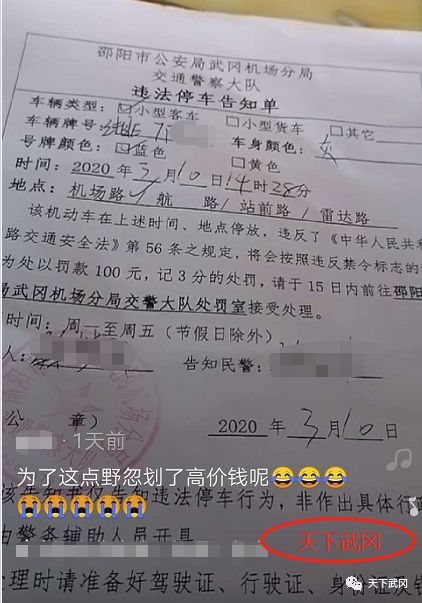 邵阳市公安局武冈机场分局
交通警察大队
违法停车告知单
车辆类型：☑小型客车 □小型货车 □其它
车辆牌号： 车身颜色：
号牌颜色：□蓝色 □黄色
时间：2020年3月10日14时28分
地点：机场路/航 路/站前路/雷达路
该机动车在上述时间、地点停放，违反了《中华人民共和
路交通安全法》第56条之规定，将会按照违反禁令标志的
为处以罚款100元，记3分的处罚，请于15日内前往邵阳
局武冈机场分局交警大队处罚室接受处理。
时间：周一至周五（节假日除外），
人： 告知民警：
公 章） 2020年3月10日
· 1天前
为了这点野忽划了高价钱呢😂😂😂
😭😭😭😭😭
该告知书仅告知违法停车行为，非作出具体行政
由警务辅助人员开具
天下武冈
理时请准备好驾驶证、行驶证、身份证
天下武冈